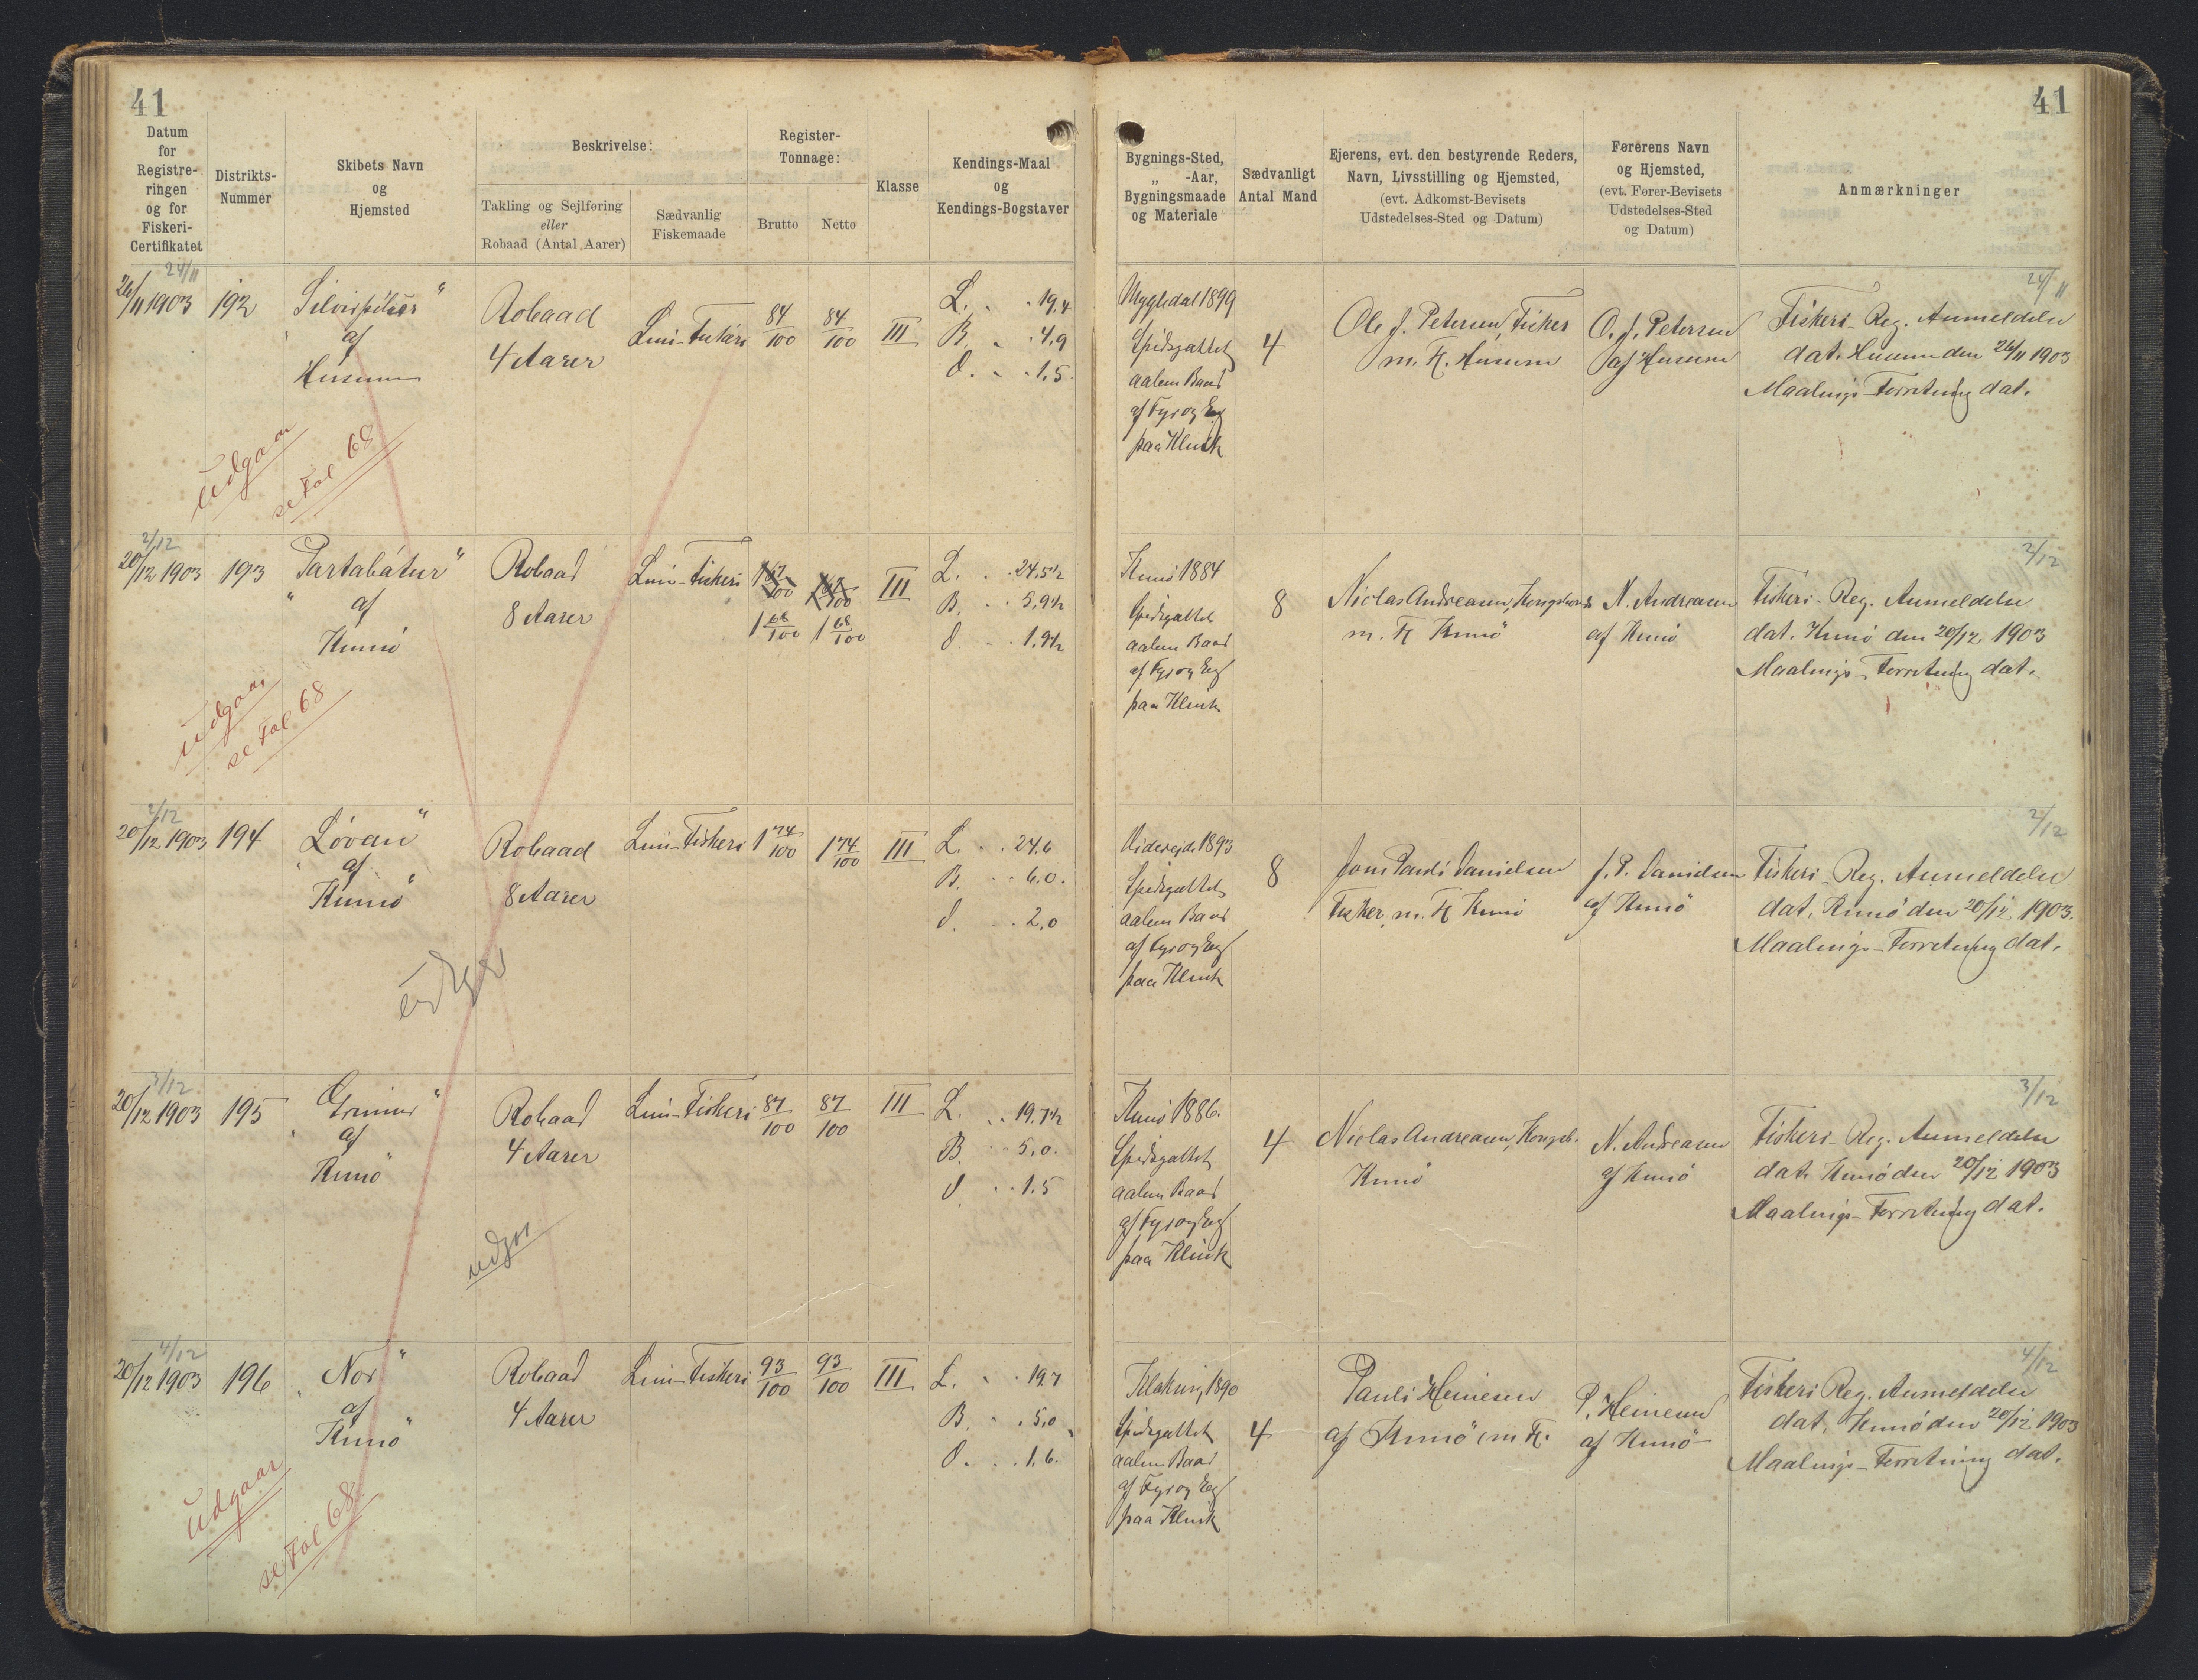 41
41
Datum
for
Registre-
ringen
og for
Fiskeri-
Certifikatet
Distrikts-
Nummer
Skibets Navn
og
Hjemsted
Beskrivelse:
Takling og Sejlføring
eller
Robaad (Antal Aarer)
Sædvanlig
Fiskemaade
Register-
Tonnage:
Brutto
Netto
Klasse
Kendings-Maal
og
Kendings-Bogstaver
Bygnings-Sted,
„ -Aar,
Bygningsmaade
og Materiale
Sædvanligt
Antal Mand
Ejerens, evt. den bestyrende Reders,
Navn, Livsstilling og Hjemsted,
(evt. Adkomst-Bevisets
Udstedelses-Sted og Datum)
Førerens Navn
og Hjemsted,
(evt. Fører-Bevisets
Udstedelses-Sted
og Datum)
Anmærkninger
24/11
26/11 1903
192
af
Husum
Robaad
4 Aarer
Lini-Fiskeri
84/100
84/100
III
L. . . 19,4
B. . . 4,9
D. . . 1,5.
Mygledal 1899
Spidsgattet
aaben Baad
af Fyr og Eg
paa Klink
4
Ole J. Petersen, Fisker
m. Fl. Husum
O. J. Petersen
af Husum
24/11
Fiskeri-Reg. Anmeldelse
dat. Husum den 26/11 1903
Maalings-Forretning dat.
Udgaar
se Fol 68
2/12
20/12 1903
193
„Partabátur“
af
Kunö
Robaad
8 Aarer
Lini-Fiskeri
1 68/100
1 68/100
III
L. . . 24,5½
B. . . 5,9½
D. . . 1,9½
Kunö 1884
Spidsgattet
aaben Baad
af Fyr og Eg
paa Klink
8
Niclas Andreasen, Kongsbonde
m. Fl Kunö
N. Andreasen
af Kunö
2/12
Fiskeri-Reg. Anmeldelse
dat. Kunö den 20/12 1903
Maalings-Forretning dat.
Udgaar
se Fol 68
2/12
20/12 1903
194
„Lövan“
af
Kunö
Robaad
8 Aarer
Lini-Fiskeri
1 74/100
1 74/100
III
L. . . 24,6
B. . . 6,0.
D. . . 2,0
Videreide 1893
Spidsgattet
aaben Baad
af Fyr og Eg
paa Klink
8
Jens Pauli Danielsen
Fisker, m. Fl Kunö
J. P. Danielsen
af Kunö
2/12
Fiskeri-Reg. Anmeldelse
dat. Kunö den 20/12 1903.
Maalings-Forretning dat.
3/12
20/12 1903
195
„Grímur“
af
Kunö
Robaad
4 Aarer
Lini-Fiskeri
87/100
87/100
III
L. . . 19,7½
B. . . 5,0.
D. . . 1,5
Kunö 1886.
Spidsgattet
aaben Baad
af Fyr og Eg
paa Klink
4
Niclas Andreasen, Kongsb.
Kunö
N. Andreasen
af Kunö
3/12
Fiskeri-Reg. Anmeldelse
dat. Kunö den 20/12 1903
Maalings-Forretning dat.
4/12
20/12 1903
196
„Nor“
af
Kunö
Robaad
4 Aarer
Lini-Fiskeri
93/100
93/100
III
L. . . 19,7
B. . . 5,0
D. . . 1,6.
Klaksvig 1890
Spidsgattet
aaben Baad
af Fyr og Eg
paa Klink
4
Pauli Heinesen
af Kunö m Fl.
P. Heinesen
af Kunö
4/12
Fiskeri Reg. Anmeldelse
dat. Kunö den 20/12 1903
Maalings-Forretning dat.
Udgaar
se Fol 68